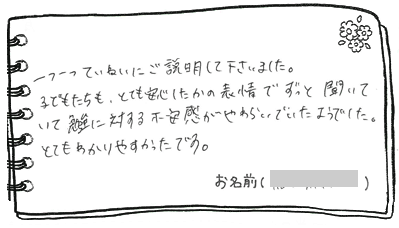 一つ一つていねいにご説明して下さいました。
子どもたちも、とても安心したかの表情でずっと聞いて
いて 鍼に対する不安感がやわらいでいたようでした。
とてもわかりやすかったです。
お名前( )